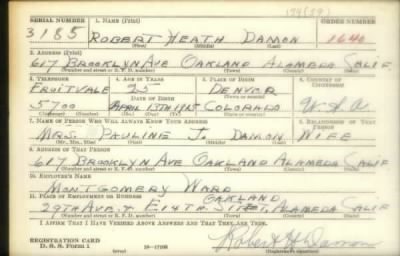 174 (S9)
SERIAL NUMBER 1. NAME (Print) ORDER NUMBER
3185 ROBERT HEATH DAMON 1640
(First) (Middle) (Last)
2. ADDRESS (Print)
617 BROOKLYN AVE OAKLAND ALAMEDA CALIF
(Number and street or R. F. D. number) (Town) (County) (State)
3. TELEPHONE 4. AGE IN YEARS 5. PLACE OF BIRTH 6. COUNTRY OF CITIZENSHIP
FRUITVALE 25 DENVER
DATE OF BIRTH (Town or county)
5700 APRIL 15TH 1915 COLORADO U.S.A.
(Exchange) (Number) (Mo.) (Day) (Yr.) (State or country)
7. NAME OF PERSON WHO WILL ALWAYS KNOW YOUR ADDRESS 8. RELATIONSHIP OF THAT PERSON
MRS. PAULINE J. DAMON WIFE
(Mr., Mrs., Miss) (First) (Middle) (Last)
9. ADDRESS OF THAT PERSON
617 BROOKLYN AVE OAKLAND ALAMEDA CALIF
(Number and street or R. F. D. number) (Town) (County) (State)
10. EMPLOYER'S NAME
MONTGOMERY WARD
11. PLACE OF EMPLOYMENT OR BUSINESS
OAKLAND
29TH AVE. & E. 14TH STREET, ALAMEDA CALIF
(Number and street or R. F. D. number) (Town) (County) (State)
I AFFIRM THAT I HAVE VERIFIED ABOVE ANSWERS AND THAT THEY ARE TRUE.
REGISTRATION CARD
D. S. S. Form 1 (over) 16-17105 Robert H. Damon
(Registrant's signature)